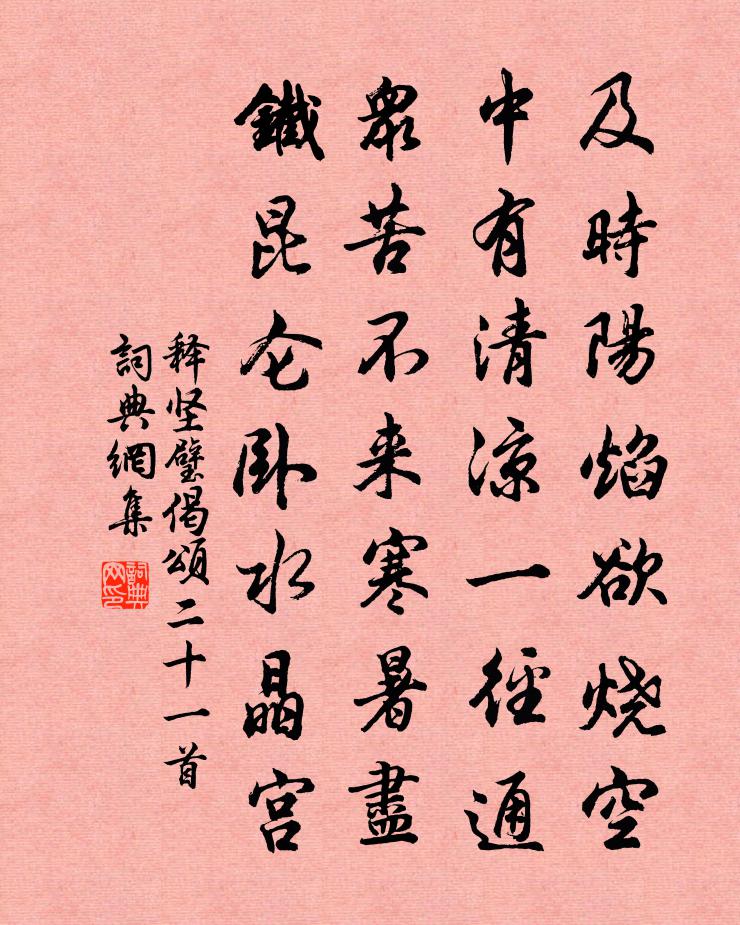 及時陽焰欲烧空
中有清凉一徑通
眾苦不来寒暑盡
鐵昆仑卧水晶宫
释坚璧偈頌二十一首
詞典網集
詞典网印